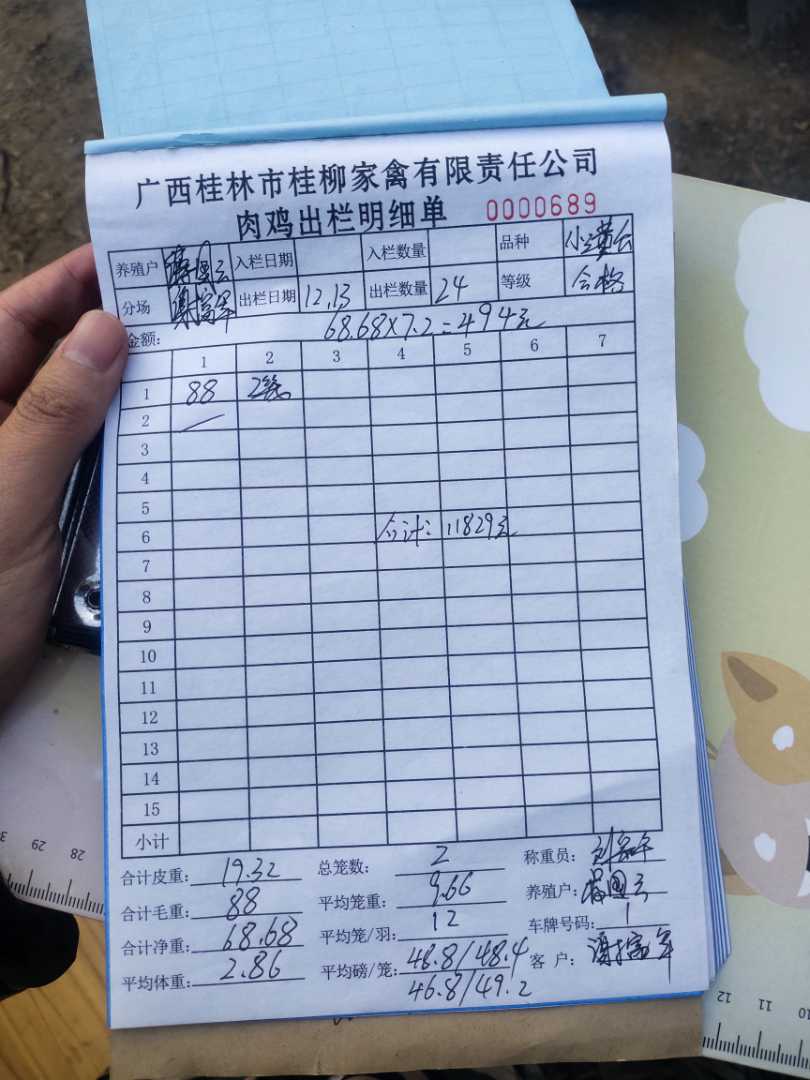 广西桂林市桂柳家禽有限责任公司
肉鸡出栏明细单 0000689
养殖户 国云 入栏日期 入栏数量 品种 小黄公
分场 谢富军 出栏日期 12.13 出栏数量 24 等级 合格
金额: 68.68×7.2=494元
1 2 3 4 5 6 7
1 88 2笼
2
3
4
5
6 合计: 11829元
7
8
9
10
11
12
13
14
15
小计
合计皮重: 19.32 总笼数: 2 称重员:
合计毛重: 88 平均笼重: 9.66 养殖户: 国云
合计净重: 68.68 平均笼/羽: 12 车牌号码: 1
平均体重: 2.86 平均磅/笼: 48.8/48.4 客户: 谢富军
46.8/49.2
28 29 3
12 11 10